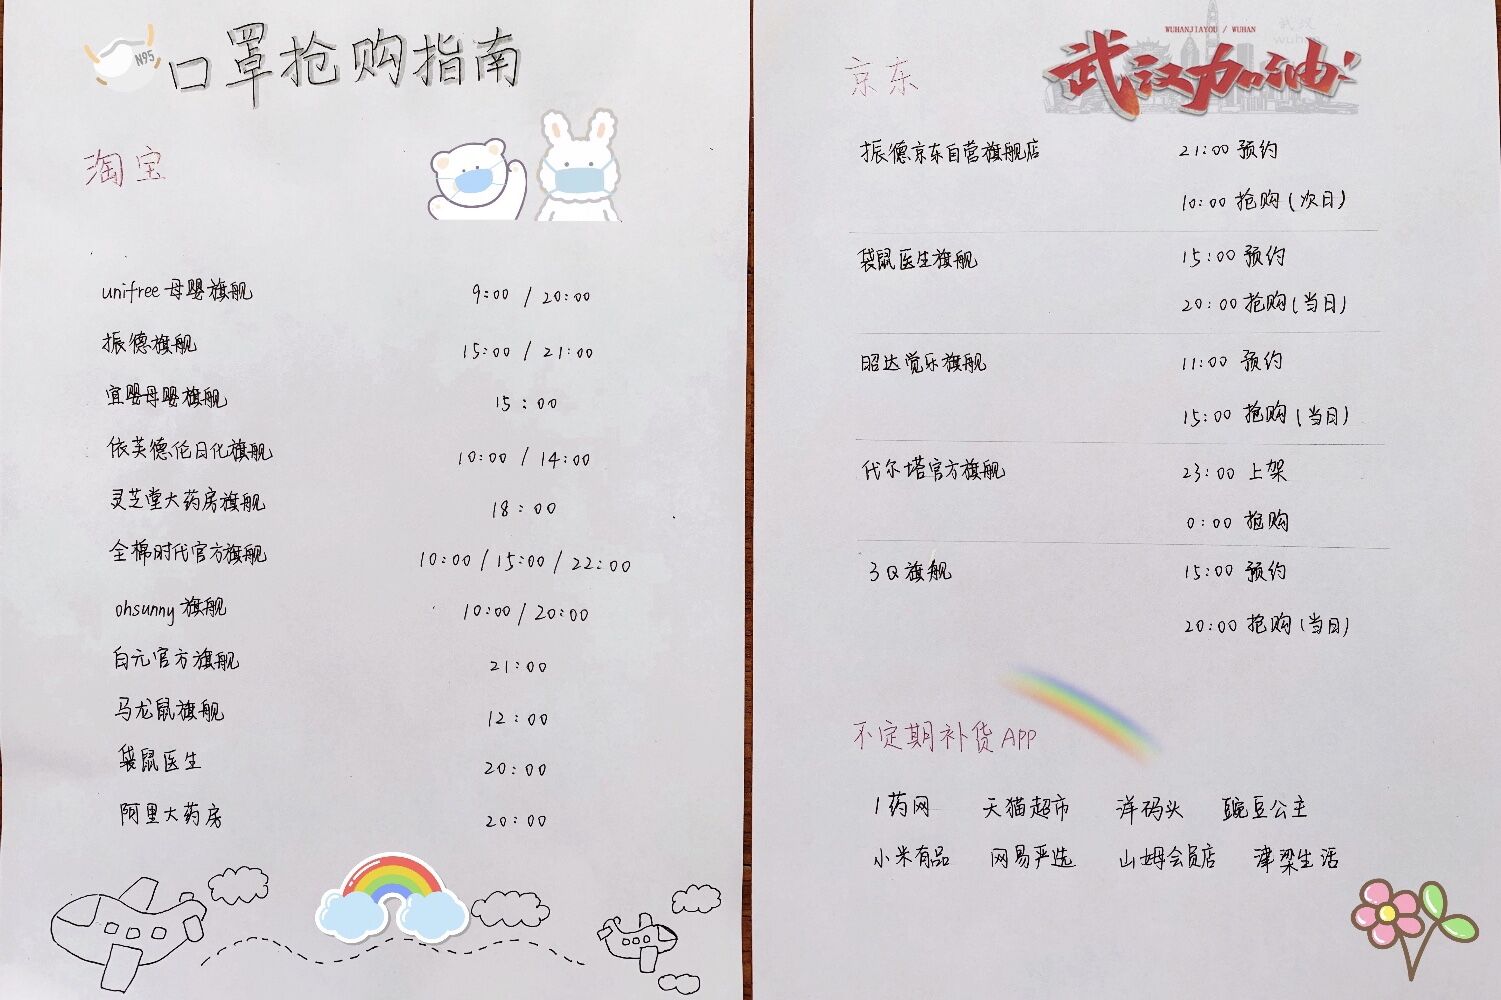 N95
口罩抢购指南
淘宝
unifree 母婴旗舰 9:00 / 20:00
振德旗舰 15:00 / 21:00
宜婴母婴旗舰 15:00
依芙德伦日化旗舰 10:00 / 14:00
灵芝堂大药房旗舰 18:00
全棉时代官方旗舰 10:00 / 15:00 / 22:00
ohsunny 旗舰 10:00 / 20:00
白元官方旗舰 21:00
马龙鼠旗舰 12:00
袋鼠医生 20:00
阿里大药房 20:00
WUHANJIAYOU / WUHAN
武汉加油!
京东
振德京东自营旗舰店 21:00 预约
10:00 抢购(次日)
袋鼠医生旗舰 15:00 预约
20:00 抢购(当日)
昭达觉乐旗舰 11:00 预约
15:00 抢购(当日)
代尔塔官方旗舰 23:00 上架
0:00 抢购
3Q旗舰 15:00 预约
20:00 抢购(当日)
不定期补货APP
1药网 天猫超市 洋码头 豌豆公主
小米有品 网易严选 山姆会员店 津梁生活